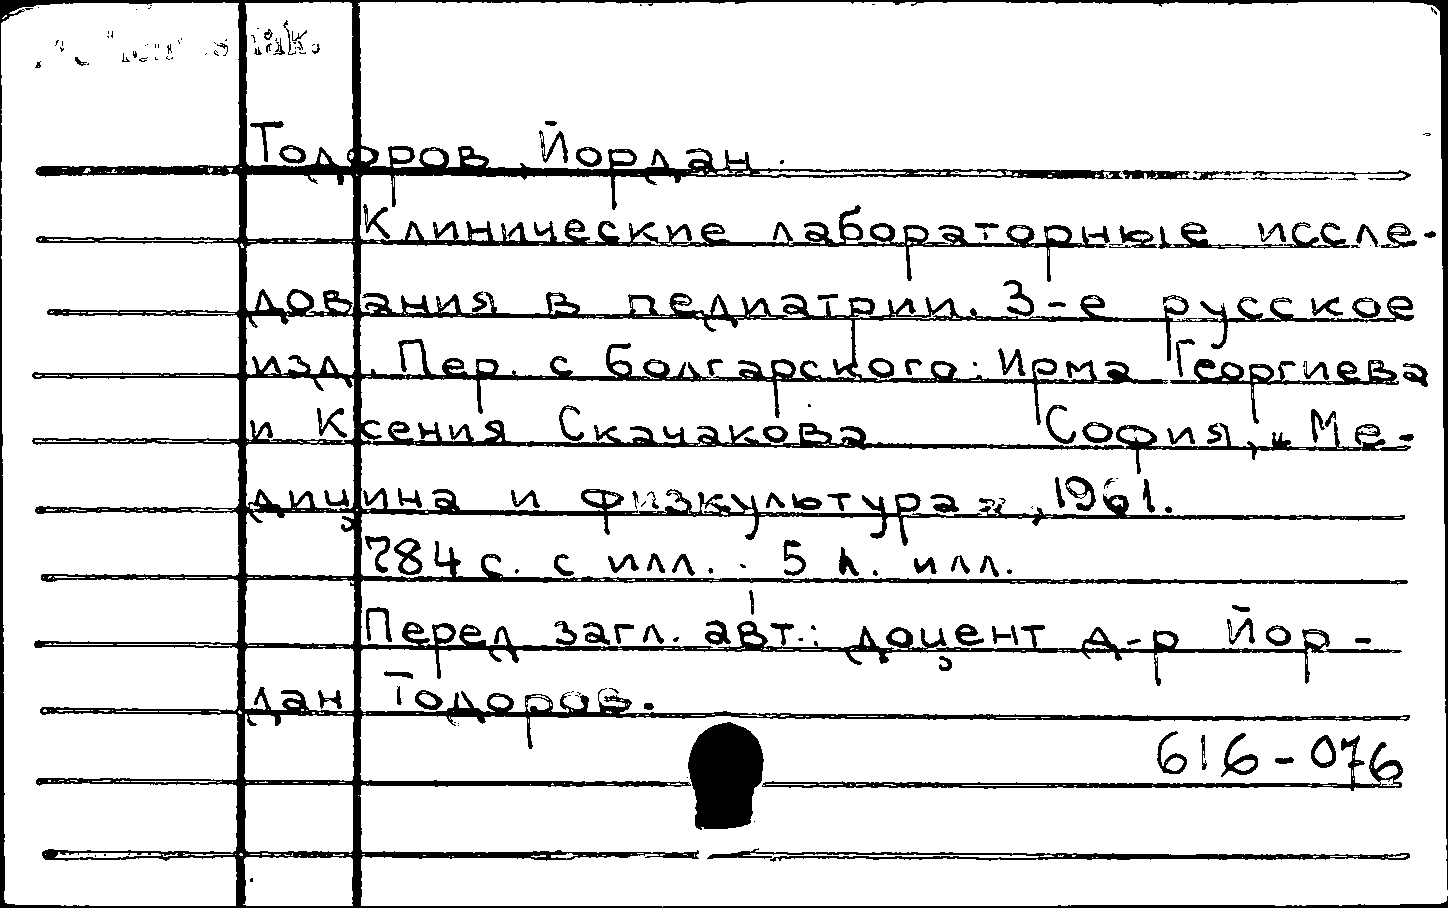 Тодоров, Йордан.
Клинические лабораторные иссле-
дования в педиатрии. 3-е русское
изд. Пер. с болгарского: Ирма Георгиева
и Ксения Скачакова София, „Ме-
дицина и физкультура”, 1961.
784 с. с илл. . 5 л. илл.
Перед загл. авт.: доцент д-р Йор-
дан Тодоров.
616-076